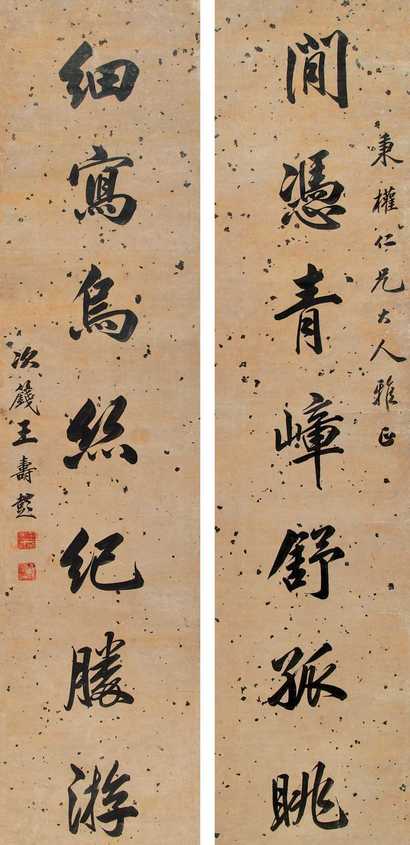 秉權仁兄大人雅正
閒憑青嶂舒孤眺
細寫烏絲紀勝游
次篯王壽彭